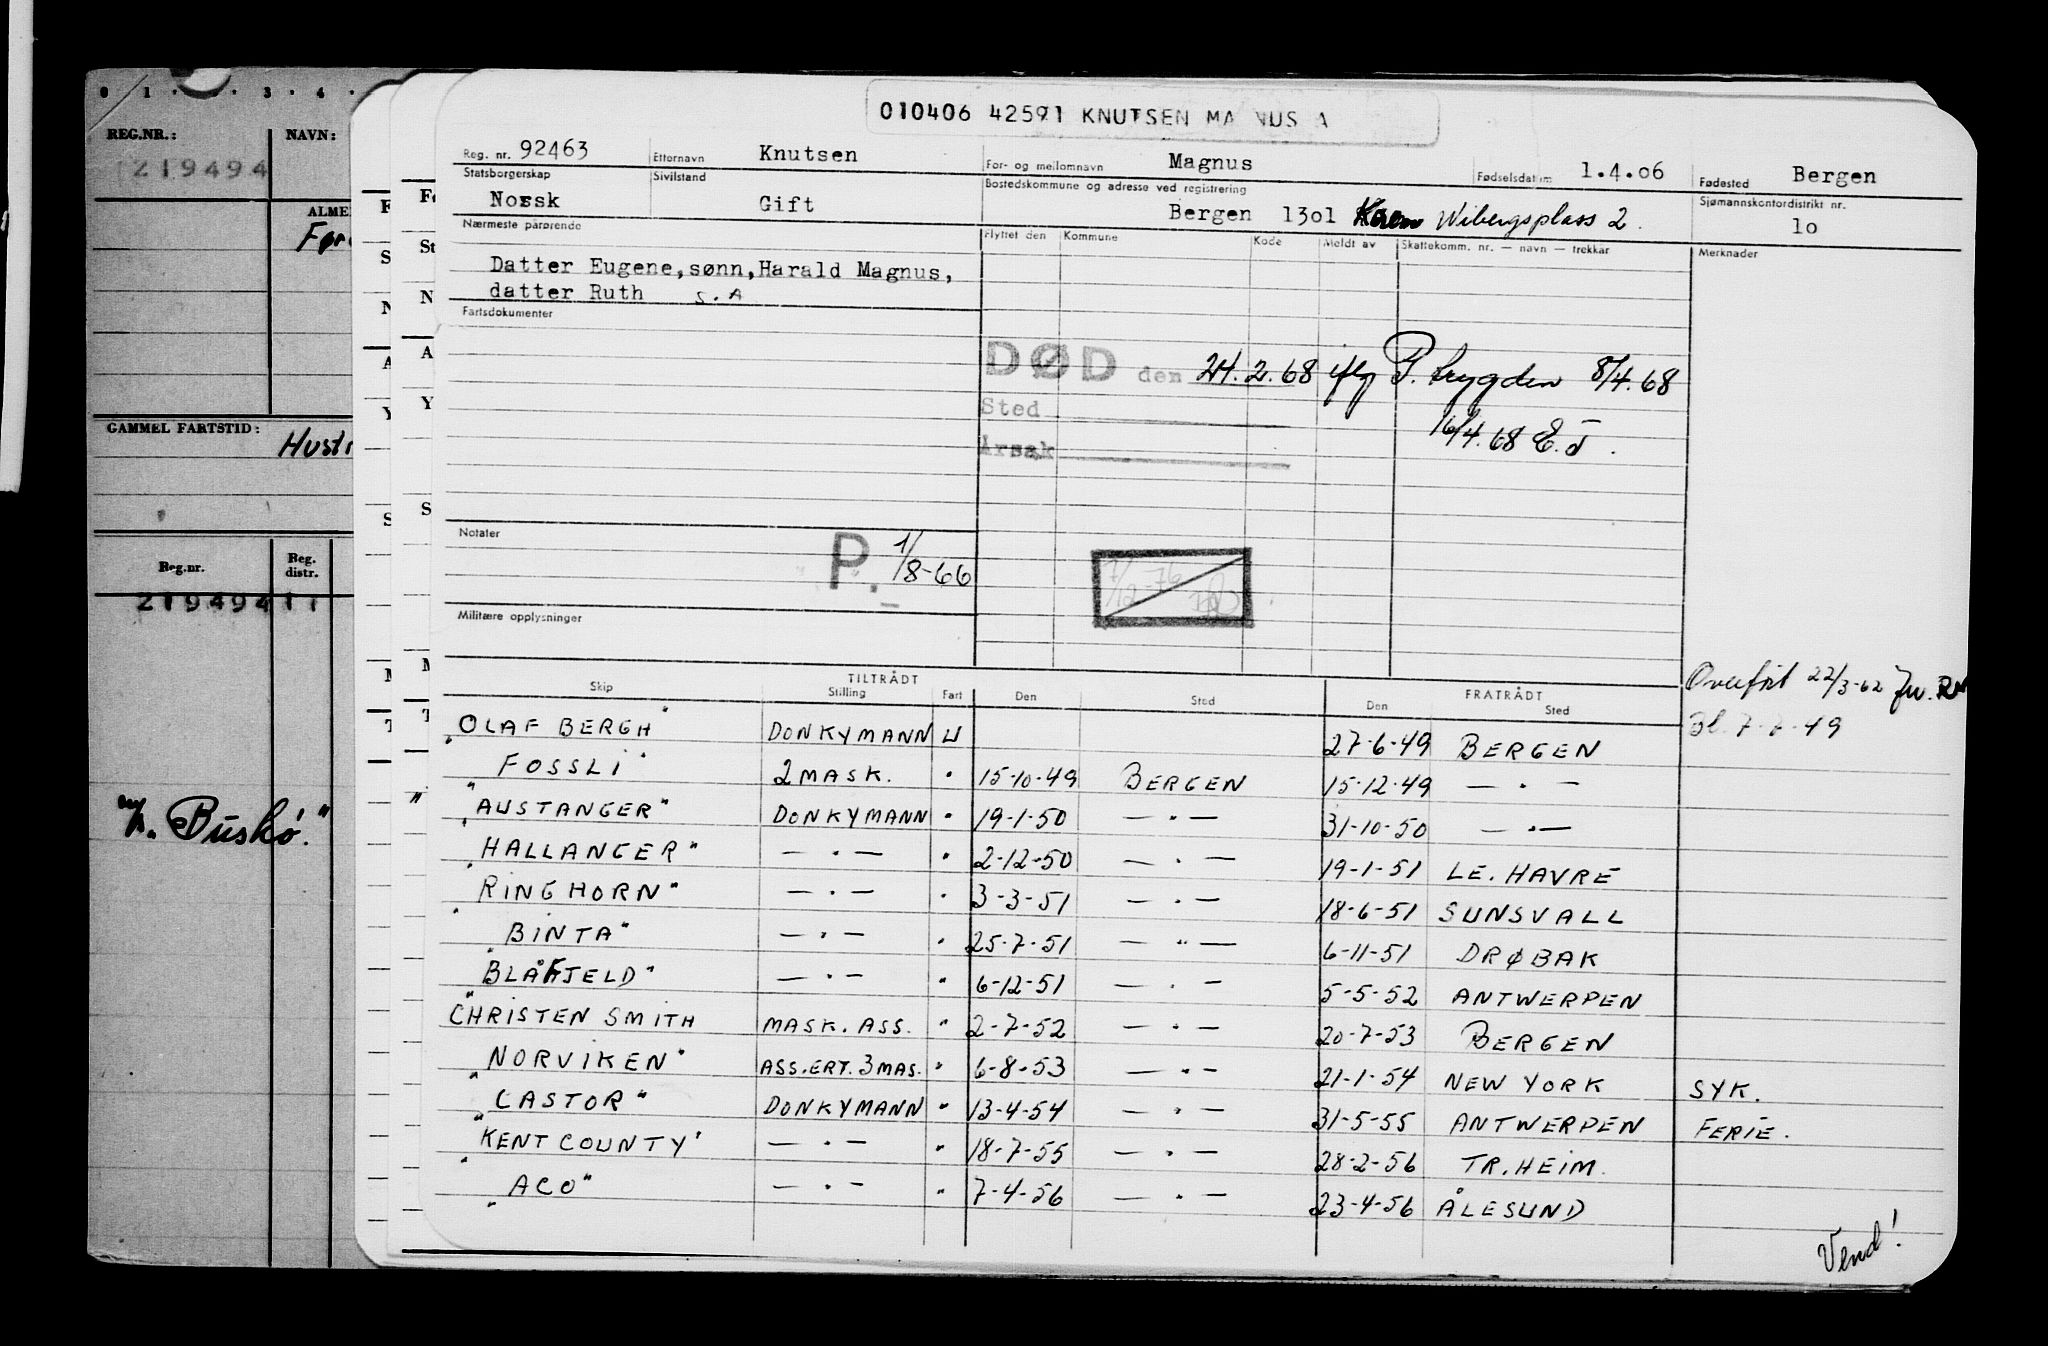 010406 42591 KNUTSEN MA NUS A
Reg. nr. 92463 Etternavn Knutsen For- og mellomnavn Magnus Fødselsdatum 1.4.06 Fødested Bergen
Statsborgerskap Norsk Sivilstand Gift Bostedskommune og adresse ved registrering Bergen 1301 Wibergsplass 2. Sjømannskontordistrikt nr. 10
Nærmeste pårørende Flyttet den Kommune Kode Meldt av Skattekomm. nr. — navn — trekkår Merknader
Datter Eugene, sønn, Harald Magnus,
datter Ruth S.A
Fartsdokumenter
DØD den 24.2.68 iflg P. trygden 8/4.68
Sted
16/4.68 E.J.
Årsak
Notater P. 1/8-66
7/12-76
Militære opplysninger
Overført 22/3-62
TILTRÅDT FRATRÅDT
Skip Stilling Fart Den Sted Den Sted
"OLAF BERGH" DONKYMANN U 27-6-49 BERGEN
"FOSSLI" 2 MASK. " 15-10-49 BERGEN 15-12-49 — " —
"AUSTANGER" DONKYMANN " 19-1-50 — " — 31-10-50 — " —
"HALLANGER" — " — " 2-12-50 — " — 19-1-51 LE. HAVRE
"RINGHORN" — " — " 3-3-51 — " — 18-6-51 SUNSVALL
"BINTA" — " — " 25-7-51 — " — 6-11-51 DRØBAK
"BLÅFJELD" — " — " 6-12-51 — " — 5-5-52 ANTWERPEN
"CHRISTEN SMITH MASK. ASS. " 2-7-52 — " — 20-7-53 BERGEN
"NORVIKEN" ASS. ERT. 3 MAS. " 6-8-53 — " — 21-1-54 NEW YORK SYK.
"CASTOR" DONKYMANN " 13-4-54 — " — 31-5-55 ANTWERPEN FERIE.
"KENT COUNTY" — " — " 18-7-55 — " — 28-2-56 TR.HEIM.
"ACO" — " — " 7-4-56 — " — 23-4-56 ÅLESUND
Vend!
REG.NR.: NAVN:
219494
GAMMEL FARTSTID:
Reg.nr. Reg. distr.
219494 11
"Buskö."